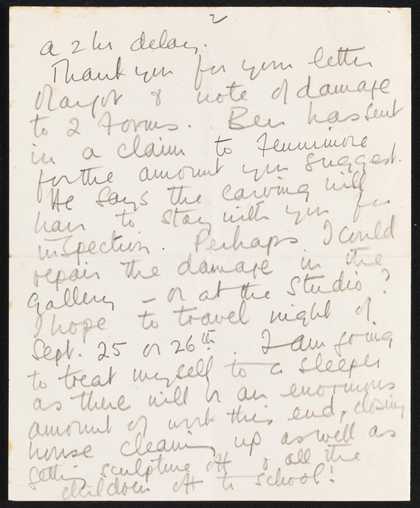 2
a 2 hr delay.
Thank you for your letter
Margot & note of damage
to 2 Forms. Ben has sent
in a claim to Fennimore
for the amount you suggest.
He says the carving will
have to stay with you for
inspection. Perhaps I could
repair the damage in the
gallery – or at the Studio?
I hope to travel night of
Sept. 25 or 26th. I am going
to treat myself to a sleeper
as there will be an enormous
amount of work this end, closing
house cleaning up as well as
getting sculpture off & all the
children off to school!